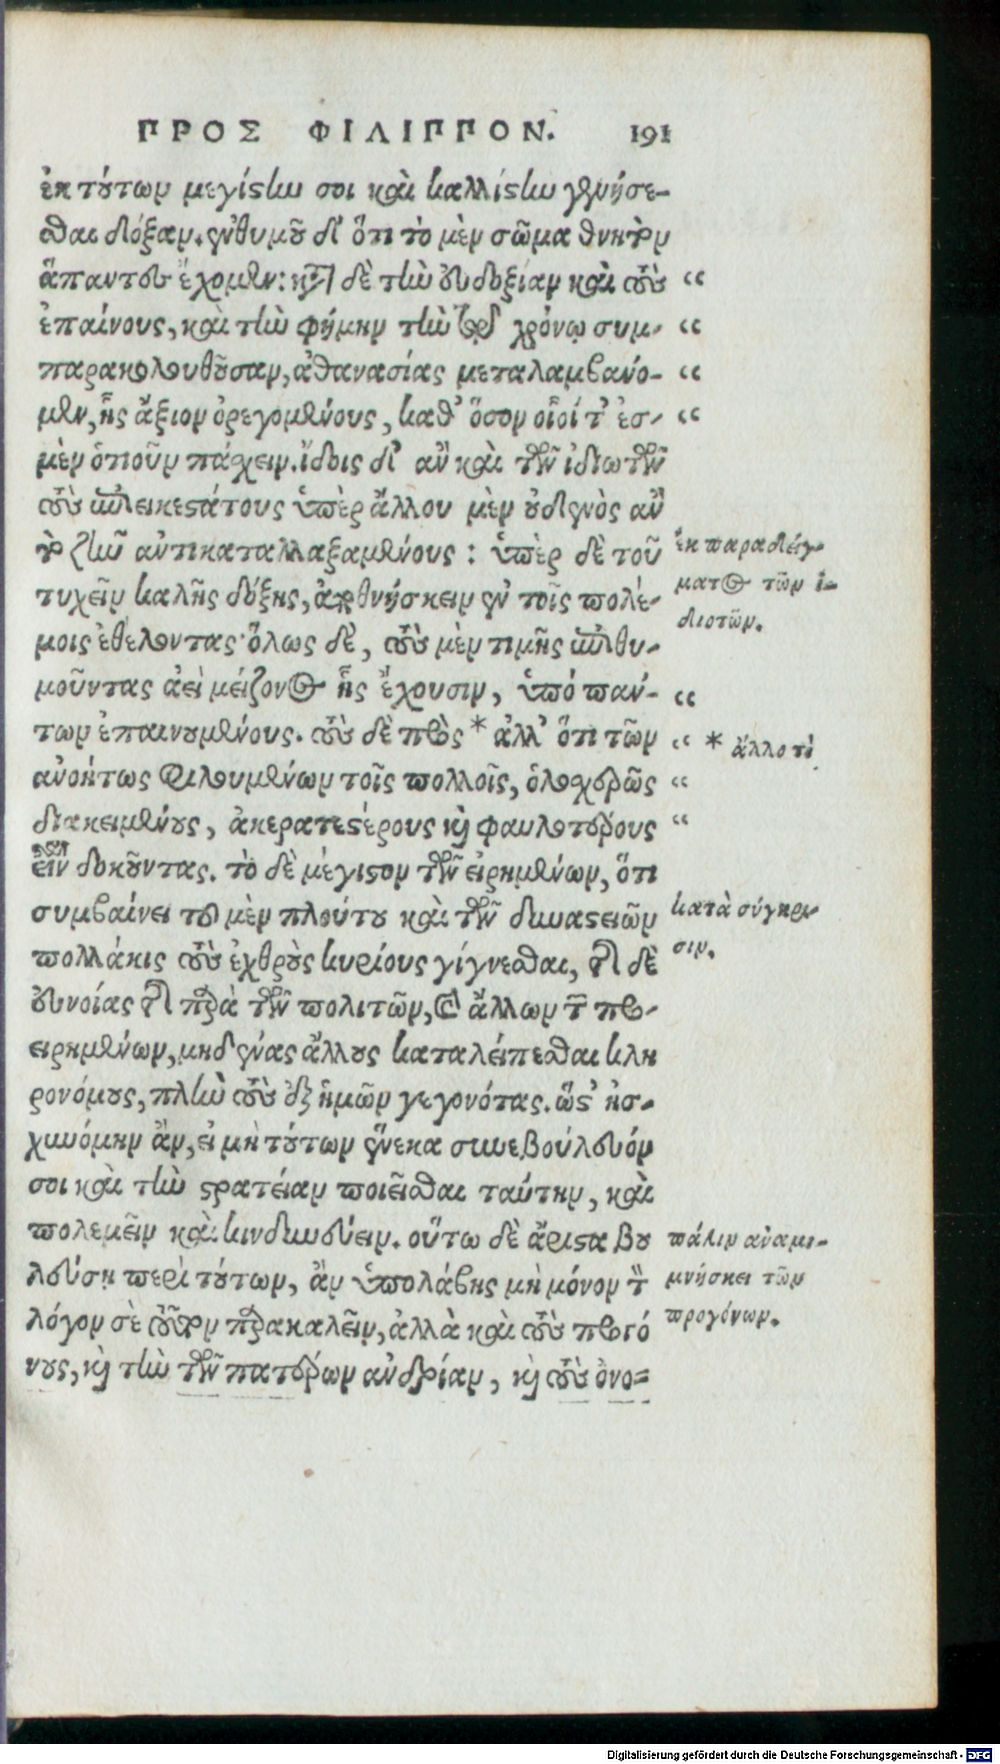 ΠΡΟΣ ΦΙΛΙΠΠΟΝ. 191
ἐκ τούτων μεγίστην σοι καὶ καλλίστην γενήσε-
σθαι δόξαν. ἐνθυμοῦ δ' ὅτι τὸ μὲν σῶμα θνητὸν
ἅπαντες ἔχομεν: κατὰ δὲ τὴν εὐδοξίαν καὶ τοὺς “
ἐπαίνους, καὶ τὴν φήμην τὴν τῷ χρόνῳ συμ- “
παρακολουθοῦσαν, ἀθανασίας μεταλαμβάνο- “
μεν, ἧς ἄξιον ὀρεγομένους, καθ' ὅσον οἷοί τ' ἐσ- “
μὲν ὁτιοῦν πάσχειν. ἴδοις δ' ἂν καὶ τῶν ἰδιωτῶν
τοὺς ἐπιεικεστάτους ὑπὲρ ἄλλου μὲν οὐδενὸς ἂν
τὸ ζῆν ἀντικαταλλαξαμένους: ὑπὲρ δὲ τοῦ
τυχεῖν καλῆς δόξης, ἀποθνήσκειν ἐν τοῖς πολέ-
μοις ἐθέλοντας· ὅλως δὲ, τοὺς μὲν τιμῆς ἐπιθυ-
μοῦντας ἀεὶ μείζονος ἧς ἔχουσιν, ὑπὸ παν- “
των ἐπαινουμένους. τοὺς δὲ πρὸς * ἀλλ' ὁτι τῶν “
ἀνοήτως φιλουμένων τοῖς πολλοῖς, ὁλοχερῶς “
διακειμένους, ἀκρατεστέρους καὶ φαυλοτέρους “
εἶναι δοκοῦντας. τὸ δὲ μέγιστον τῶν εἰρημένων, ὅτι
συμβαίνει τοῦ μὲν πλούτου καὶ τῶν δυναστειῶν
πολλάκις τοὺς ἐχθροὺς κυρίους γίγνεσθαι, τῆς δὲ
εὐνοίας τῆς παρὰ τῶν πολιτῶν, καὶ ἄλλων τῶν προ-
ειρημένων, μηδένας ἄλλους καταλείπεσθαι κλη
ρονόμους, πλὴν τοὺς ἐξ ἡμῶν γεγονότας. ὥστ' ἠσ-
χυνόμην ἂν, εἰ μὴ τούτων ἕνεκα συνεβούλευόν
σοι καὶ τὴν στρατείαν ποιεῖσθαι ταύτην, καὶ
πολεμεῖν καὶ κινδυνεύειν. οὕτω δὲ ἄριστα βου
λεύσῃ περὶ τούτων, ἂν ὑπολάβῃς μὴ μόνον τὸν
λόγον σὲ τοῦτον παρακαλεῖν, ἀλλὰ καὶ τοὺς προγό
νους, καὶ τὴν τῶν πατέρων ἀνδρίαν, καὶ τοὺς ὀνο-
ἐκ παραδείγ-
ματος τῶν ἰ-
διοτῶν.
* ἄλλο τὶ
κατὰ σύγκρι-
σιν.
πάλιν ἀναμι-
μνήσκει τῶν
προγόνων.
Digitalisierung gefördert durch die Deutsche Forschungsgemeinschaft - DFG